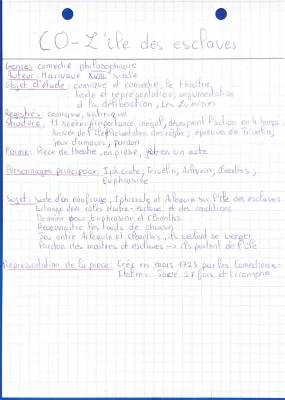 CO - L'île des esclaves
Genre: comédie philosophique
Auteur: Marivaux XVIII siècle
Objet d'étude: comique et comédie, le théâtre,
texte et représentation, argumentation
et la délibération, Les Lumières
Registres: comique, satirique
Structure: 11 scènes d'importance inégal, découpent l'action en temps:
arrivée de l'île, présentation des règles; épreuves de Trivelin;
jeux d'amours; pardon
Forme: Pièce de théâtre, en prose, en un acte
Personnages principaux: Iphicrate; Trivelin; Arlequin; Cléanthis;
Euphrosine
Sujet: Suite d'un naufrage, Iphicrate et Arlequin sur l'île des esclaves
Echange des rôles maitre-esclave et des conditions
De même pour Euphrosine et Cléanthis.
Reconnaitre les torts de chacun
Jeu entre Arlequin et Cléanthis, ils veulent se venger
Pardon des maitres et esclaves → ils partent de l'île
Représentation de la pièce: Crée en mars 1725 par les Comédiens-
Italiens. Joué 21 fois et triomphe